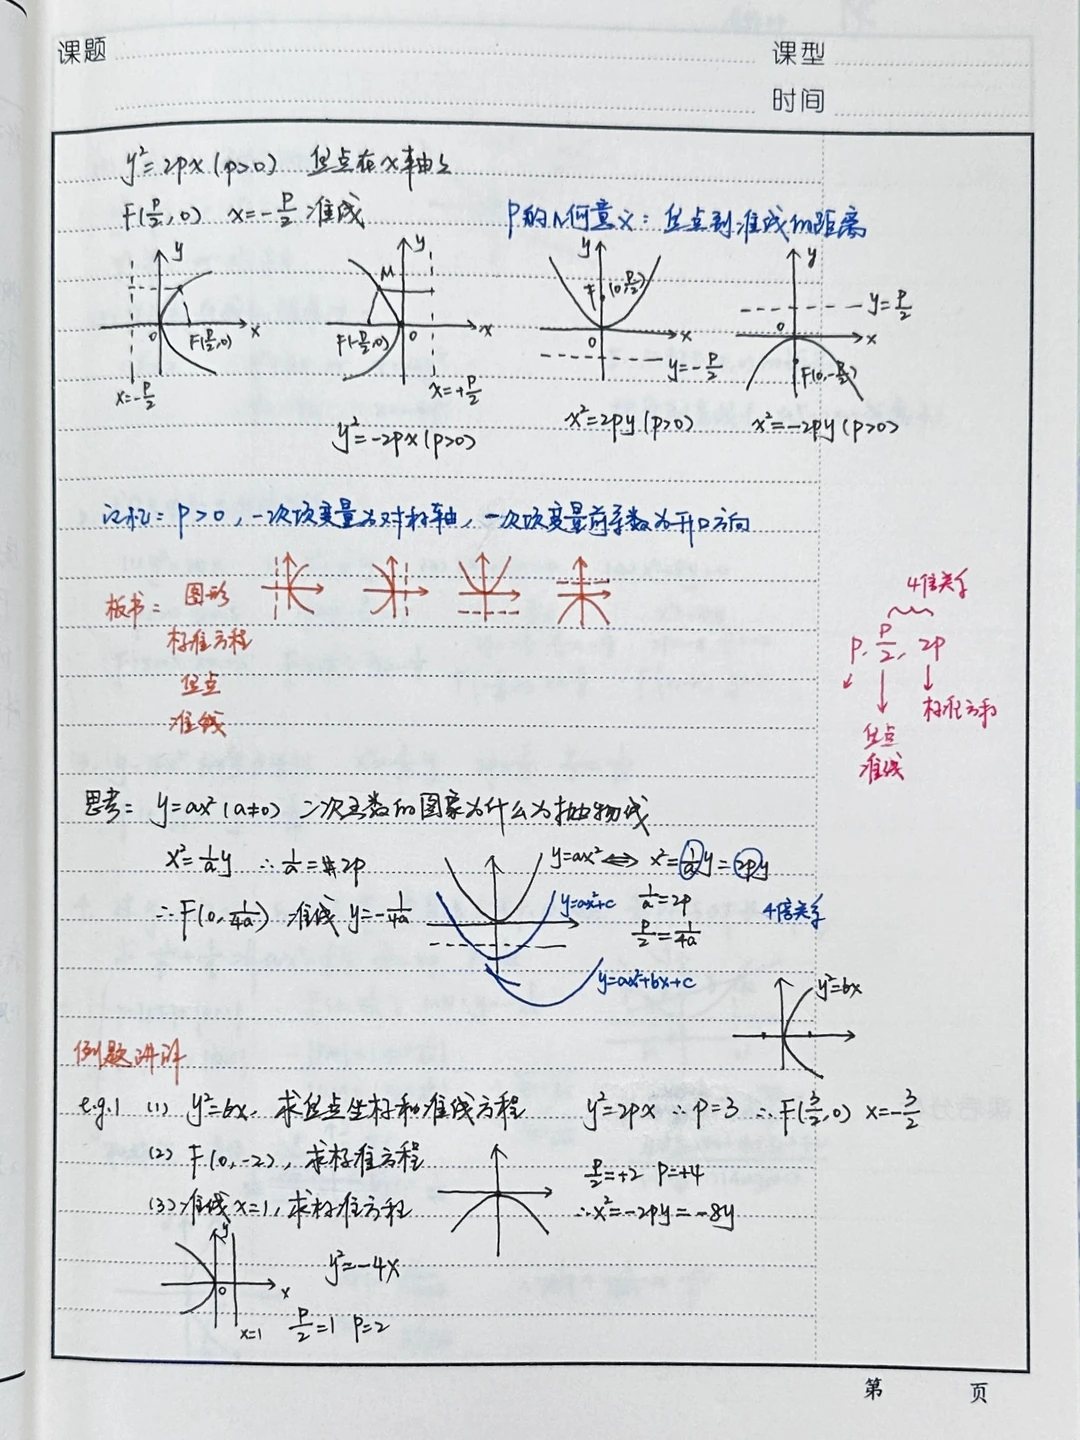 课题
课型
时间
y²=2px(p>0) 焦点在x轴上
F(p/2,0) x=-p/2 准线
p的几何意义：焦点到准线的距离
y
x
0
F(p/2,0)
x=-p/2
y
M
F(-p/2,0)
0
x
x=+p/2
y²=-2px(p>0)
y
F(0,p/2)
0
x
y=-p/2
x²=2py(p>0)
y
y=p/2
0
x
F(0,-p/2)
x²=-2py(p>0)
记忆：p>0，一次项变量为对称轴，一次项变量前系数为开口方向
板书：图形
标准方程
焦点
准线
4倍关系
p, p/2, 2p
标准方程
焦点
准线
思考：y=ax²(a≠0) 二次函数的图象为什么为抛物线
x²=1/a y ∴1/a=2p
∴F(0,1/4a) 准线 y=-1/4a
y=ax² ⇔ x²=1/a y=2py
y=ax²+c
1/a=2p
p/2=1/4a
4倍关系
y=ax²+bx+c
y²=6x
例题讲解
e.g.1 (1) y²=6x，求焦点坐标和准线方程 y²=2px ∴p=3 ∴F(3/2,0) x=-3/2
(2) F(0,-2)，求标准方程
p/2=+2 p=+4
(3) 准线x=1，求标准方程
∴x²=-2py=-8y
y
0
x
x=1
y²=-4x
p/2=1 p=2
第 页